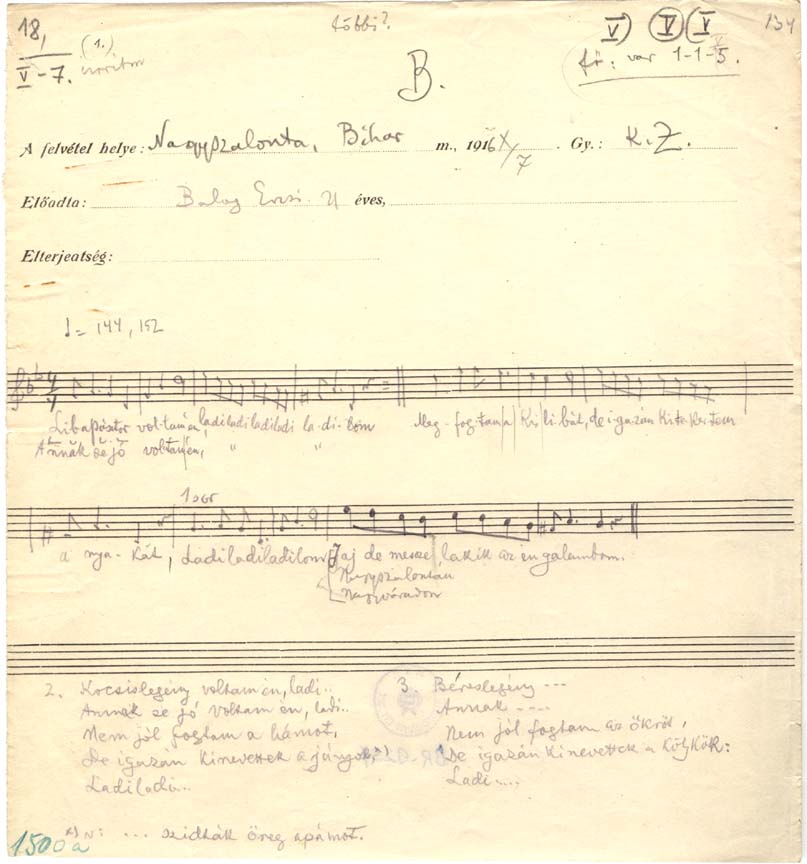 18,
V-7.
(1.)
többi?
V) V (V
134
fő: var 1-1-5.
B.
A felvétel helye: Nagyszalonta, Bihar m., 1916 X/7. Gy.: K.Z.
Előadta: Balog Erzsi 21 éves,
Elterjeatség:
♩= 144, 152
Libapásztor voltam én, ladiladiladiladi la-di-lom Meg-fog-tam a kis li-bát, de igazán kitekertem
Annak se jó voltam én, " "
1 ser
a nya-kát, Ladiladiladilom Jaj de messze lakik az én galambom.
Nagyszalontán
Nagyváradon
2. Kocsislegény voltam én, ladi..
Annak se jó voltam én, ladi..
Nem jól fogtam a hámot,
De igazán kinevettek a jányok,*)
Ladiladi...
3. Béreslegény ---
Annak ----
Nem jól fogtam az ökröt,
De igazán kinevettek a kölykök:
Ladi.....
*) N: ... szidták öreg apámot.
1500a